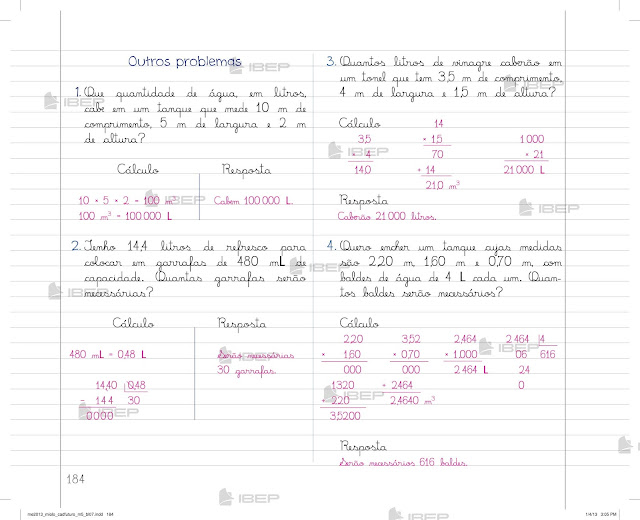 Outros problemas
1. Que quantidade de água, em litros,
cabe em um tanque que mede 10 m de
comprimento, 5 m de largura e 2 m
de altura?
Cálculo
Resposta
10 × 5 × 2 = 100 m³
100 m³ = 100 000 L
Cabem 100 000 L.
2. Tenho 14,4 litros de refresco para
colocar em garrafas de 480 mL de
capacidade. Quantas garrafas serão
necessárias?
Cálculo
Resposta
480 mL = 0,48 L
14,40 0,48
- 14 4 30
0 0 00
Serão necessárias
30 garrafas.
184
3. Quantos litros de vinagre caberão em
um tonel que tem 3,5 m de comprimento,
4 m de largura e 1,5 m de altura?
Cálculo
14
3,5 × 1,5 1 000
4 70 × 21
14,0 + 14 21 000 L
21,0 m³
Resposta
Caberão 21 000 litros.
4. Quero encher um tanque cujas medidas
são 2,20 m, 1,60 m e 0,70 m, com
baldes de água de 4 L cada um. Quan-
tos baldes serão necessários?
Cálculo
2,20 3,52 2,464 2 464 4
× 1,60 × 0,70 × 1.000 06 616
000 000 2 464 L 24
1320 + 2464 0
+ 220 2,4640 m³
3,5200
Resposta
Serão necessários 616 baldes.
IBEP
IBEP
IBEP
IBEP
IBEP
IBEP
IBEP
IBEP
IBEP
IBEP
IBEP
IBEP
1/4/13 3:05 PM